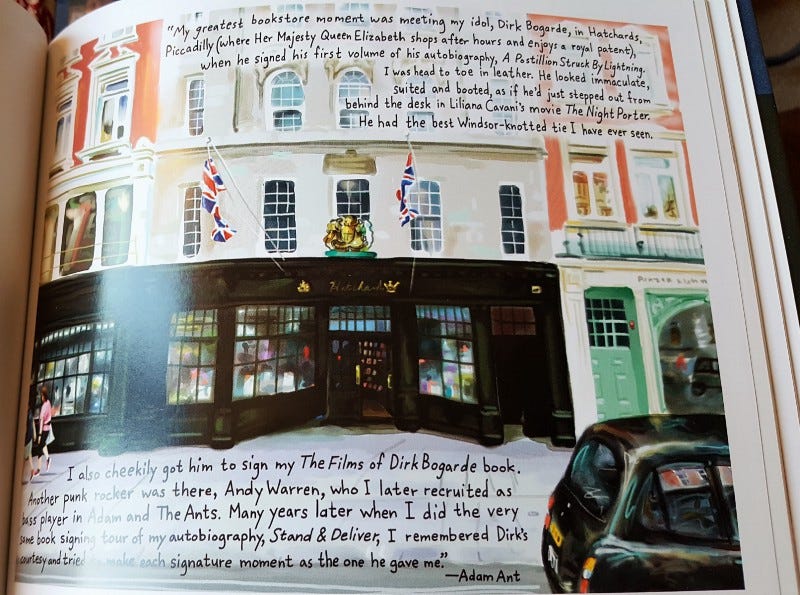 "My greatest bookstore moment was meeting my idol, Dirk Bogarde, in Hatchards,
Piccadilly (where Her Majesty Queen Elizabeth shops after hours and enjoys a royal patent),
when he signed his first volume of his autobiography, A Postillion Struck By Lightning.
I was head to toe in leather. He looked immaculate,
suited and booted, as if he'd just stepped out from
behind the desk in Liliana Cavani's movie The Night Porter.
He had the best Windsor-knotted tie I have ever seen.
Hatchards
I also cheekily got him to sign my The Films of Dirk Bogarde book.
Another punk rocker was there, Andy Warren, who I later recruited as
bass player in Adam and The Ants. Many years later when I did the very
same book signing tour of my autobiography, Stand & Deliver, I remembered Dirk's
courtesy and tried to make each signature moment as the one he gave me."
—Adam Ant